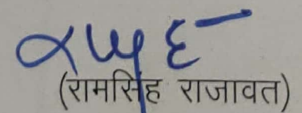 (रामसिंह राजावत)